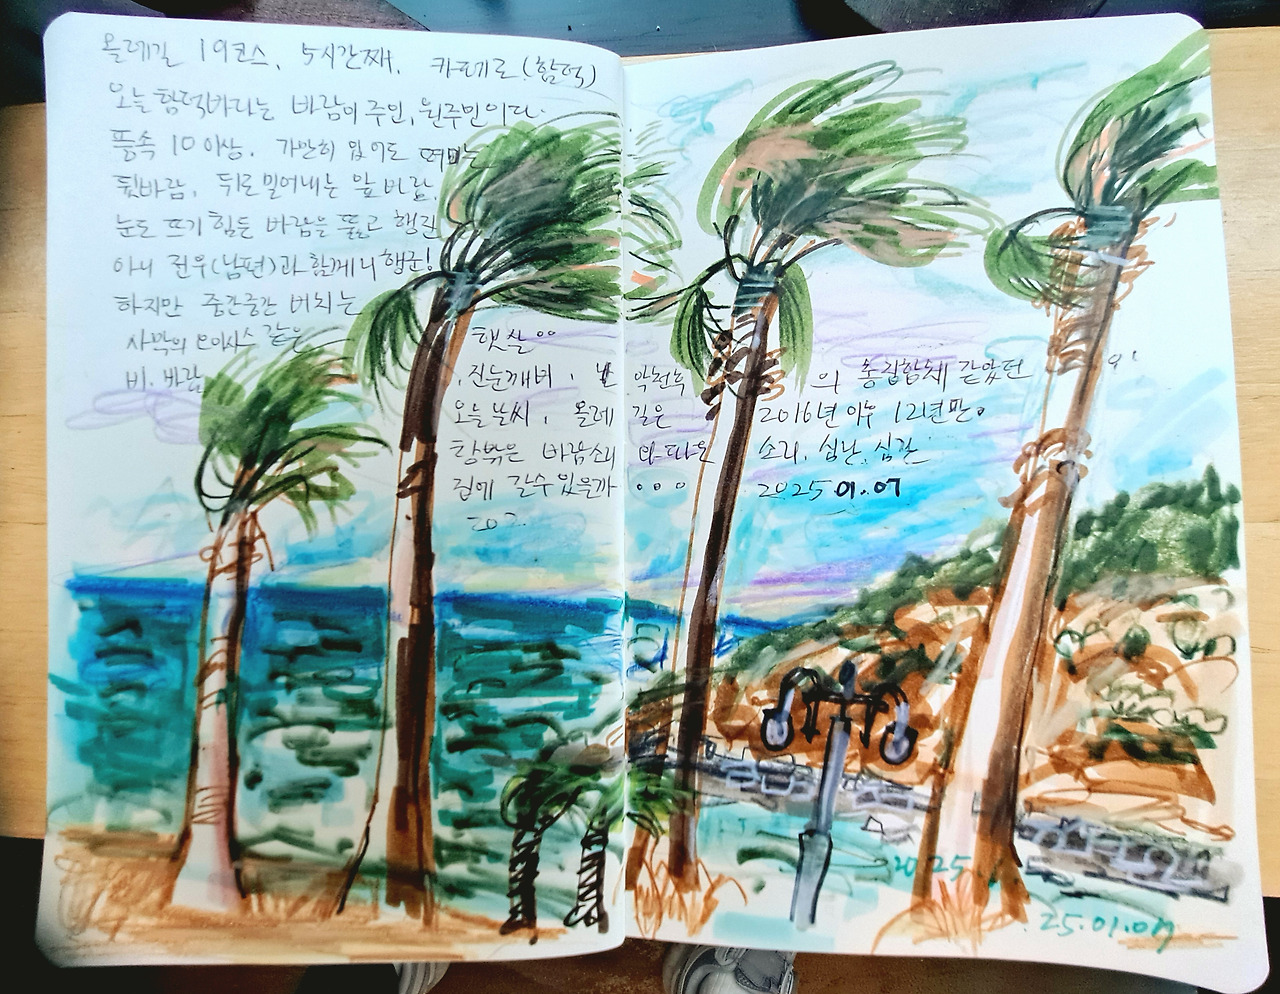 올레길 19코스, 5시간째, 카페로(함덕)
오늘 함덕바다는 바람이 주인, 원주민이다.
풍속 10이상. 가만히 있어도 떠미는
뒷바람, 뒤로 밀어내는 앞바람,
눈도 뜨기 힘든 바람을 뚫고 행진
아니 전우(남편)과 함께니 행군!
하지만 중간중간 비치는
사막의 오아시스 같은
햇살..
비. 바람, 진눈깨비, 눈 악천후의 종합합체 같았던
오늘 날씨, 올레길은 2016년 이후 12년만.
창밖은 바람소리 파도소리, 심난, 심란
집에 갈수있을까 ... 2025 01.07
202
2025
25.01.07